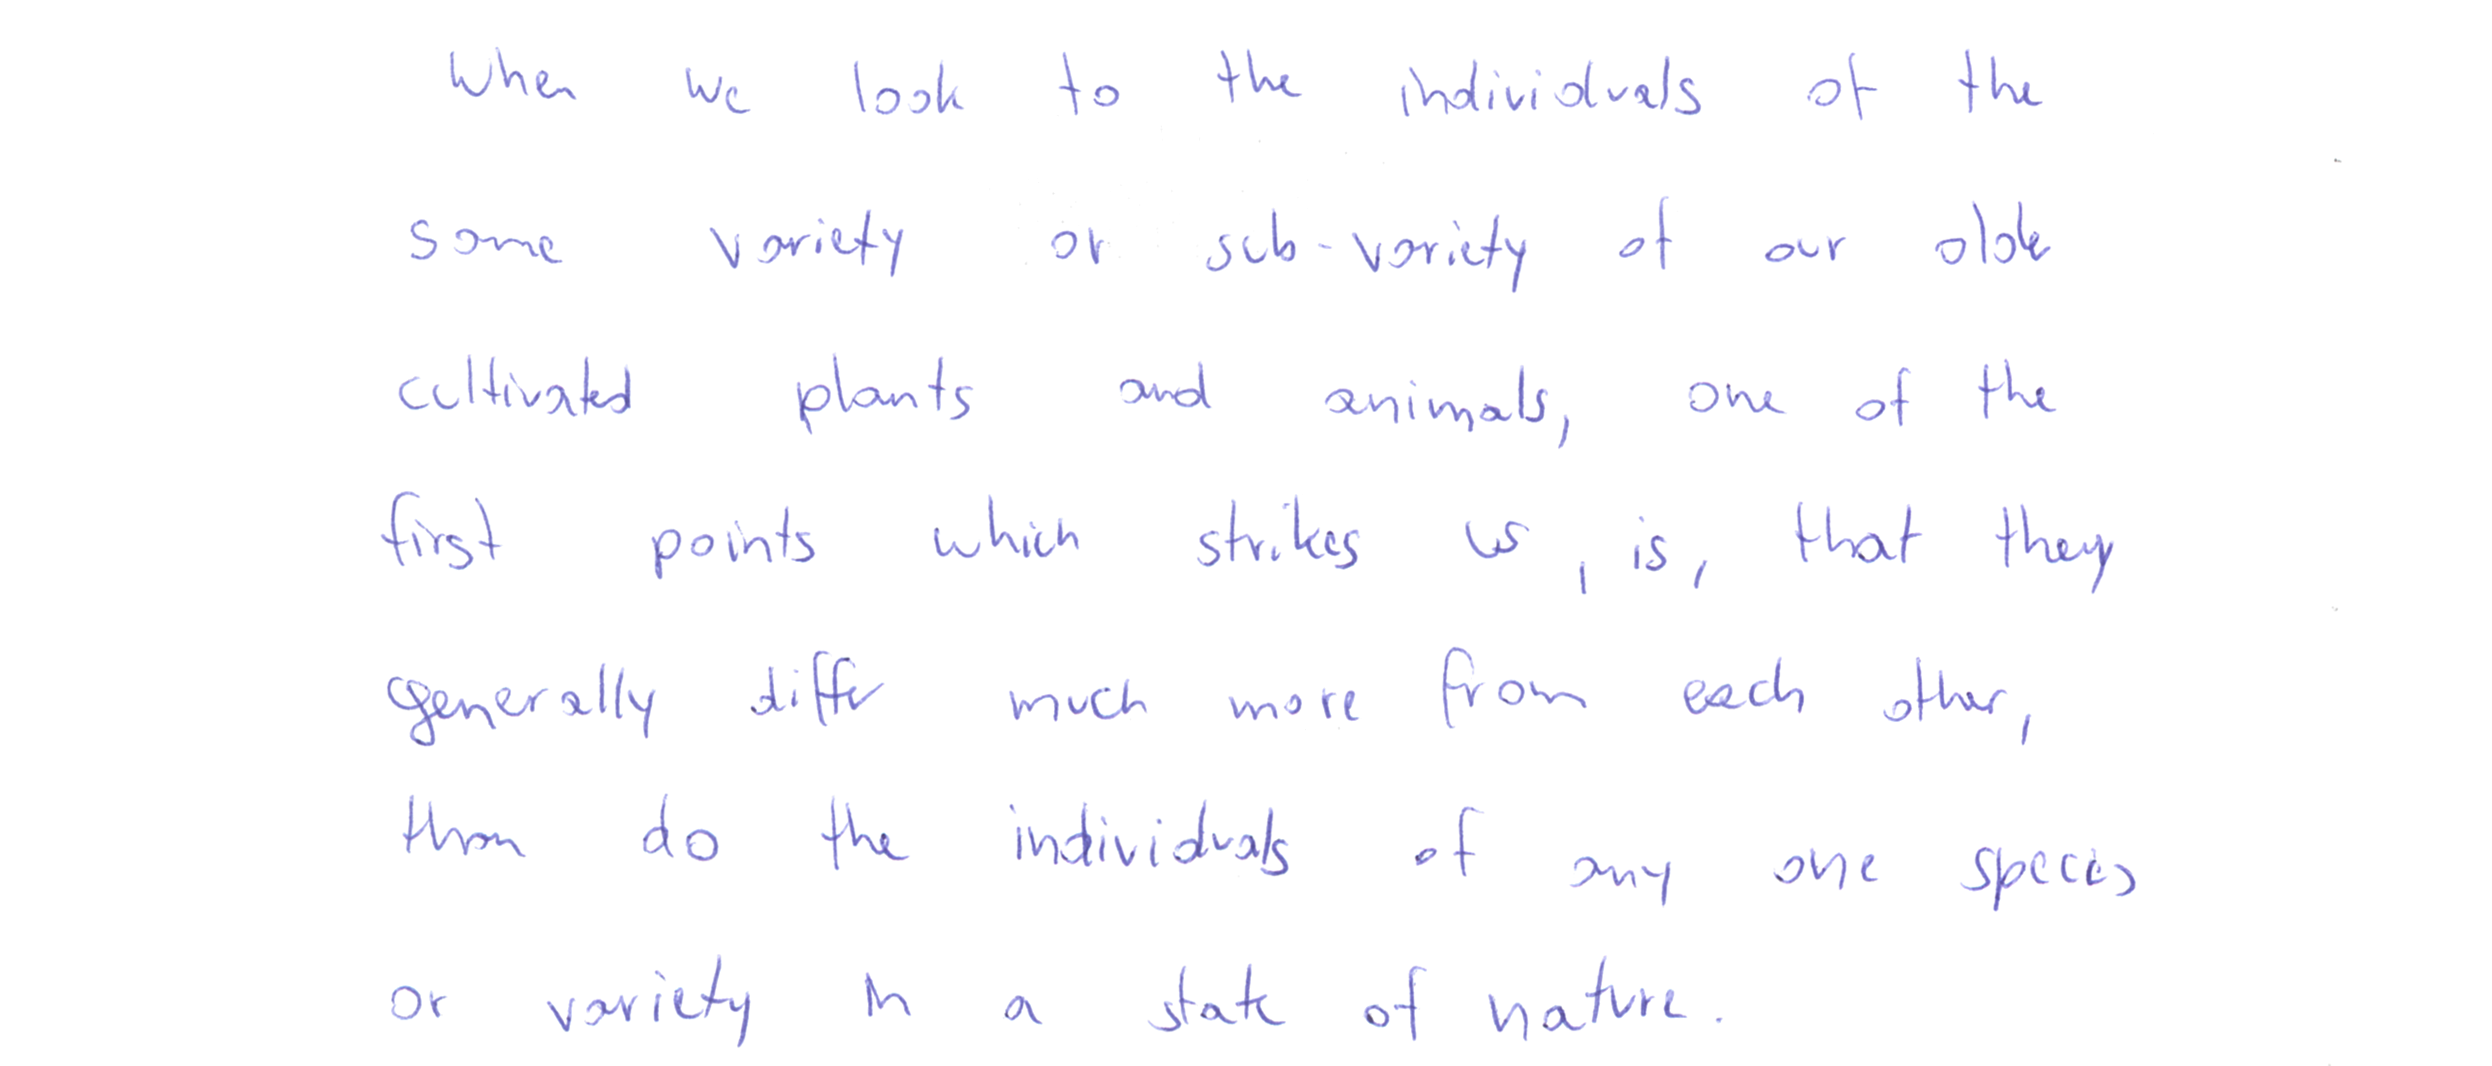 When we look to the individuals of the
same variety or sub-variety of our older
cultivated plants and animals, one of the
first points which strikes us, is, that they
generally differ much more from each other,
than do the individuals of any one species
or variety in a state of nature.